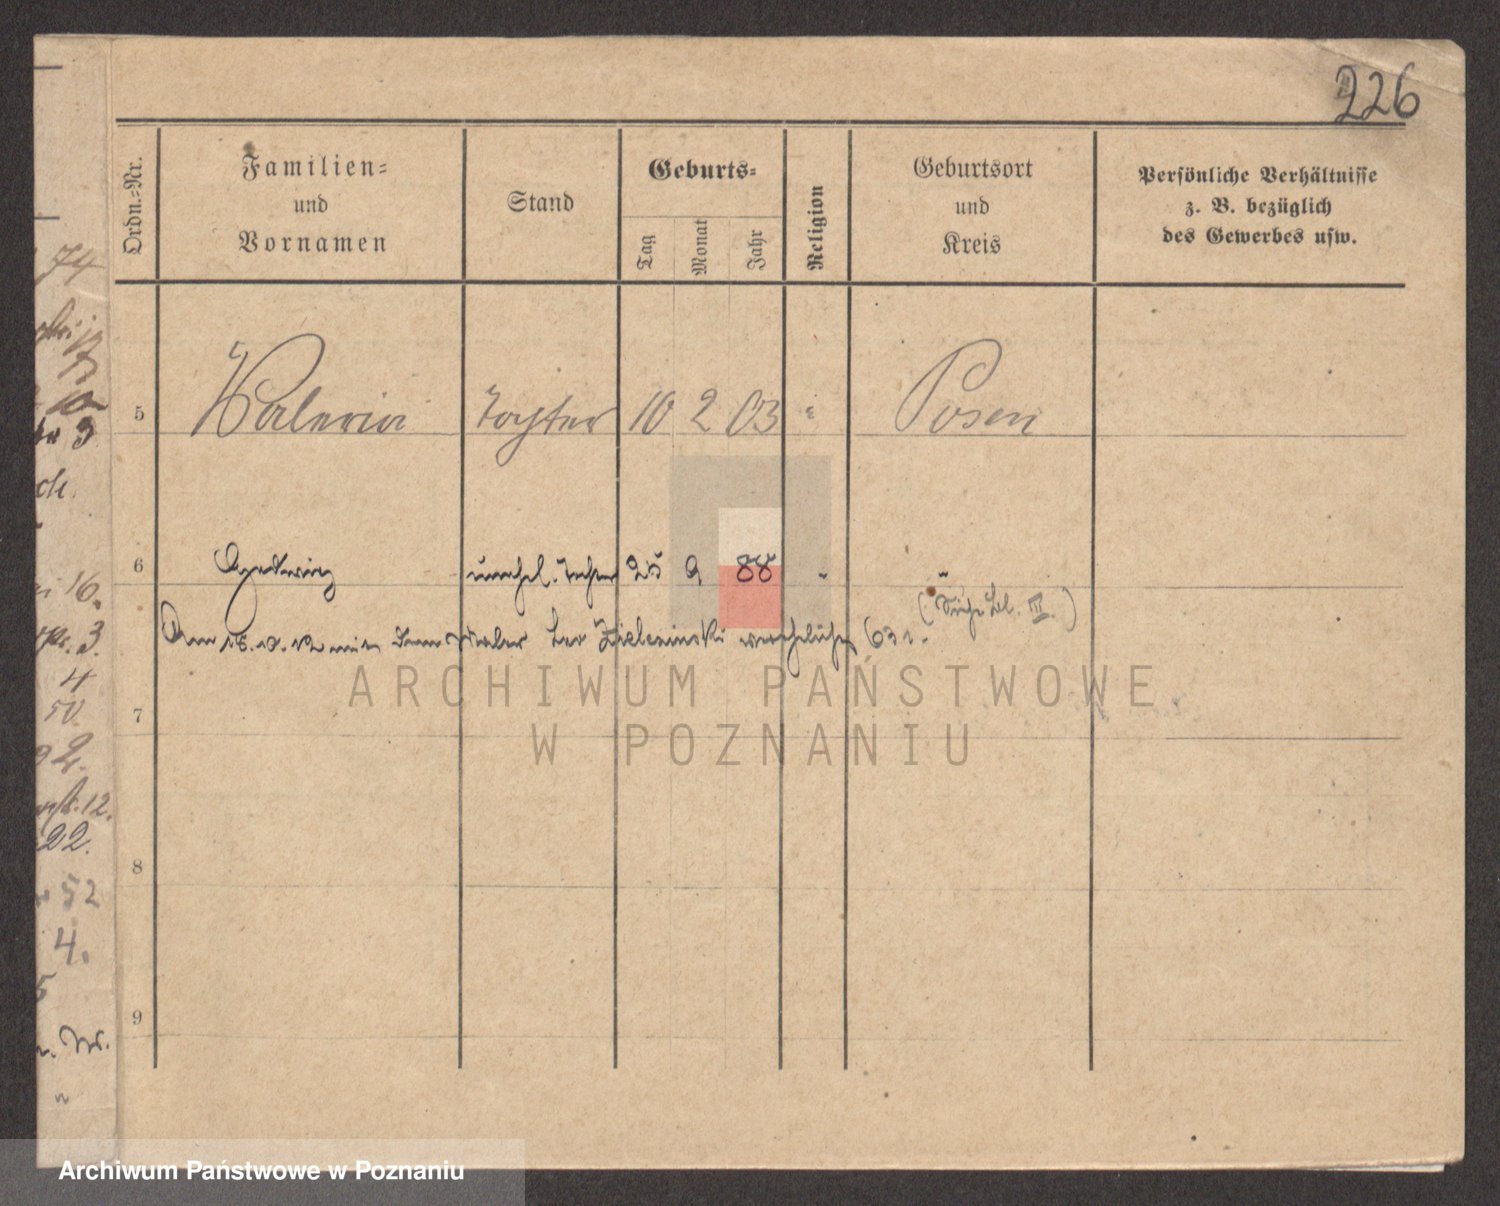 226
Ordn.-Nr.
Familien-
und
Vornamen
Stand
Geburts-
Tag
Monat
Jahr
Religion
Geburtsort
und
Kreis
Persönliche Verhältnisse
z. B. bezüglich
des Gewerbes usw.
74
10
3
16.
3.
4
50
2.
12.
22.
52
4.
5 Valeria Tochter 10 2 03 " Posen
6 Hedwig unehel. Tochter 25 9 88 " "
(Siehe Bl. III.)
Am mit dem der Zielezinski verehelicht
7
8
9
ARCHIWUM PAŃSTWOWE
W POZNANIU
Archiwum Państwowe w Poznaniu